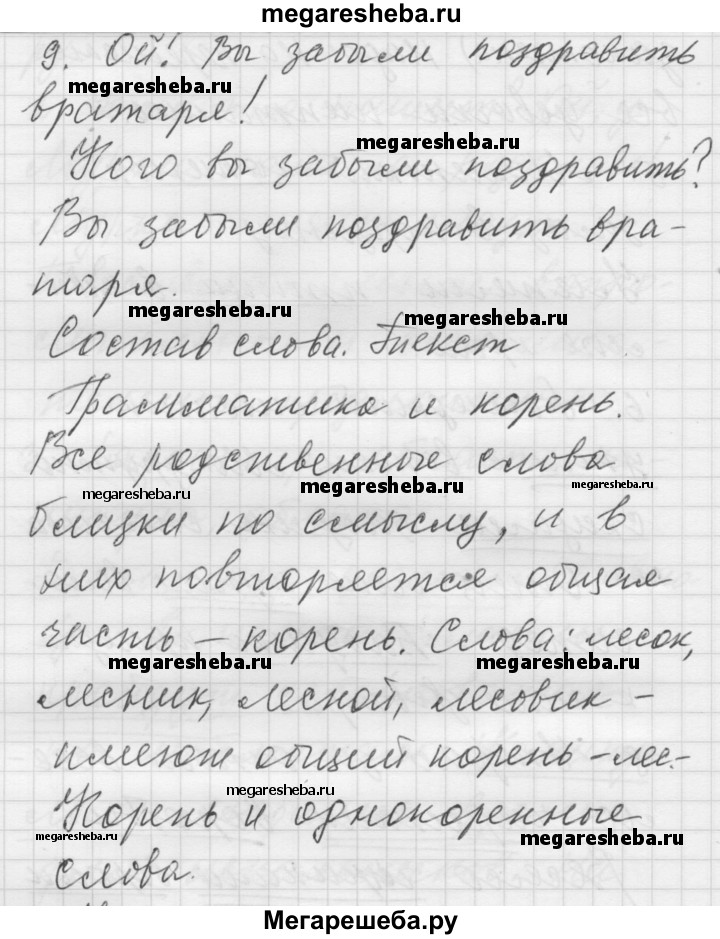 megaresheba.ru
9. Ой! Вы забыли поздравить
megaresheba.ru
вратаря!
megaresheba.ru
Кого вы забыли поздравить?
Вы забыли поздравить вра-
таря.
megaresheba.ru
megaresheba.ru
Состав слова. Текст
Грамматика и корень.
Все родственные слова
megaresheba.ru megaresheba.ru megaresheba.ru
близки по смыслу, и в
них повторяется общая
часть – корень. Слова: лесок,
megaresheba.ru megaresheba.ru
лесник, лесной, лесовик –
имеют общий корень –лес.-
megaresheba.ru
Корень и однокоренные
megaresheba.ru megaresheba.ru
слова.
Мегарешеба.ру